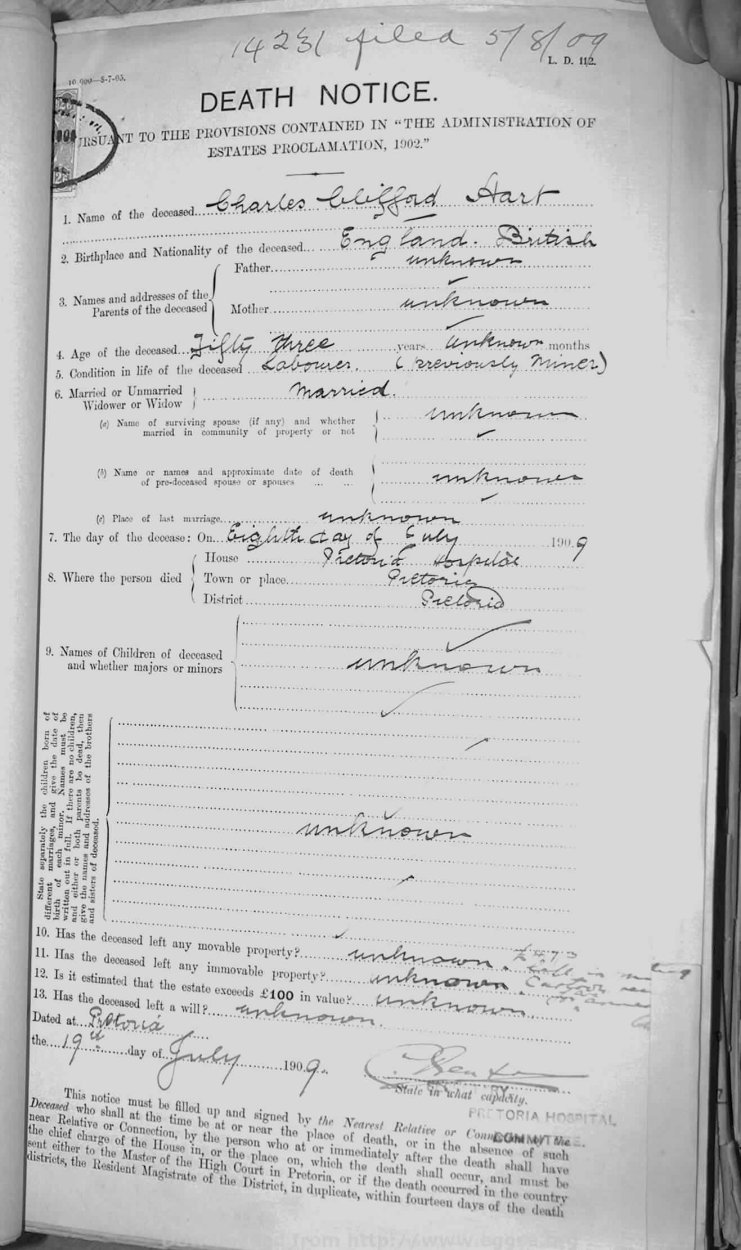 14231 filed 5/8/09
L. D. 112.
10,000—8-7-05.
DEATH NOTICE.
URSUANT TO THE PROVISIONS CONTAINED IN "THE ADMINISTRATION OF
ESTATES PROCLAMATION, 1902."
1. Name of the deceased Charles Clifford Hart
2. Birthplace and Nationality of the deceased England. British
3. Names and addresses of the Parents of the deceased
Father unknown
Mother unknown
4. Age of the deceased Fifty three years unknown months
5. Condition in life of the deceased Labourer. (previously Miner)
6. Married or Unmarried Widower or Widow Married.
(a) Name of surviving spouse (if any) and whether married in community of property or not unknown
(b) Name or names and approximate date of death of pre-deceased spouse or spouses ... ... unknown
(c) Place of last marriage unknown
7. The day of the decease: On Eighth day of July 1909
8. Where the person died
House Pretoria Hospital
Town or place Pretoria
District Pretoria
9. Names of Children of deceased
and whether majors or minors unknown
State separately the children born of
different marriages, and give the date of
birth of each minor. Names must be
written out in full. If there are no children,
and either or both parents be dead, then
give the names and addresses of the brothers
and sisters of deceased.
unknown
10. Has the deceased left any movable property? unknown.
11. Has the deceased left any immovable property? unknown.
12. Is it estimated that the estate exceeds £100 in value? unknown
13. Has the deceased left a will? unknown.
Dated at Pretoria
the 19th day of July 1909.
State in what capacity.
PRETORIA HOSPITAL
COMMITTEE.
This notice must be filled up and signed by the Nearest Relative or
Deceased who shall at the time be at or near the place of death, or in the absence of such
near Relative or Connection, by the person who at or immediately after the death shall have
the chief charge of the House in, or the place on, which the death shall occur, and must be
sent either to the Master of the High Court in Pretoria, or if the death occurred in the country
districts, the Resident Magistrate of the District, in duplicate, within fourteen days of the death
from http://www.eggsa.org